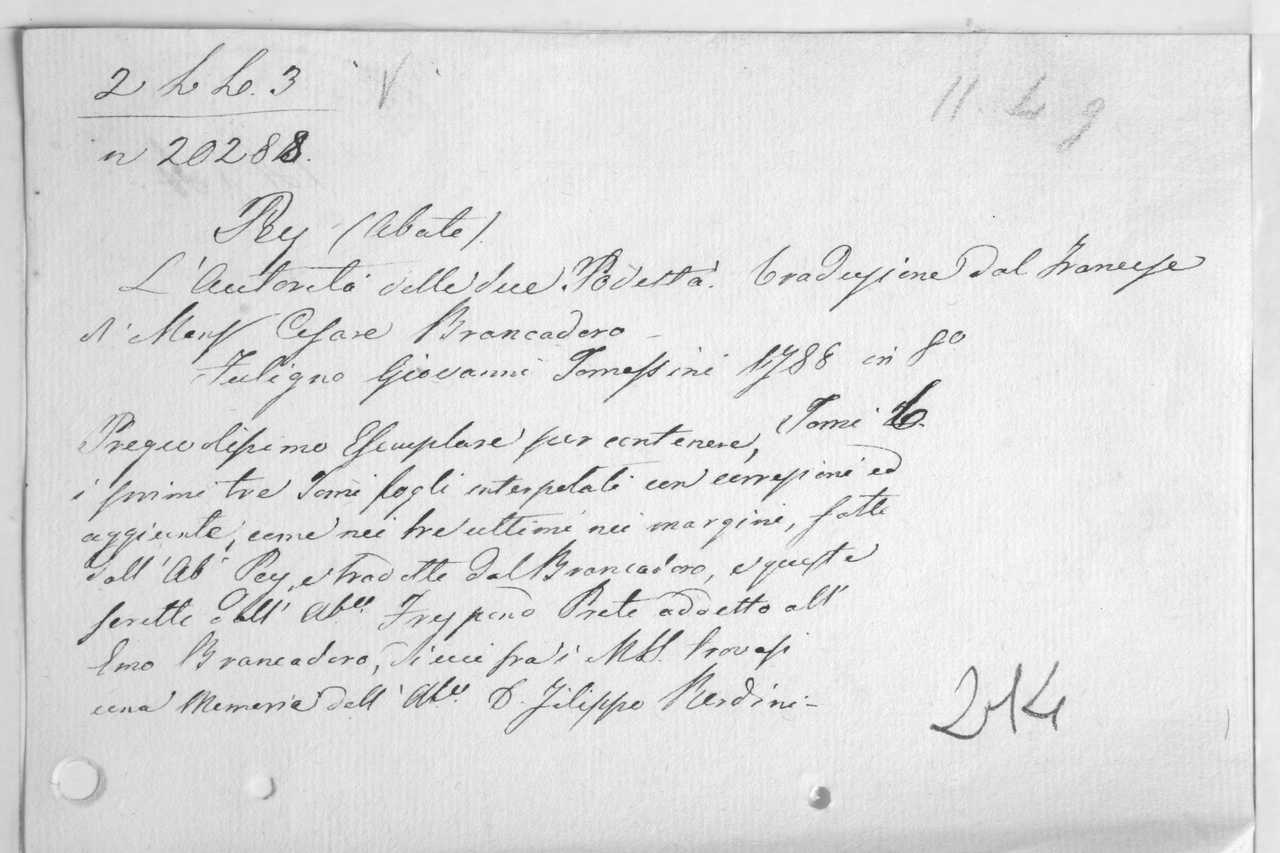 2 L L. 3 V
11. L g
n 20288.
Pey (Abate).
L'Autorità delle due Podestà. Traduzione dal Francese
di Mons Cesare Brancadoro
Fuligno Giovanni Tomassini 1788 in 8º
Tomi 6.
Pregiudisimo Esemplare per contenere,
i primi tre Tomi fogli interpelati con corresioni ed
aggiunte, come nei tre ultimi nei margini, fatte
dall' Abe Pey, e tradotte dal Brancadoro, e queste
scritte dall' Abe Prete addetto all'
Emo Brancadoro, di cui fra i MSS. trovasi
una Memoria dell' Abe D. Filippo
214